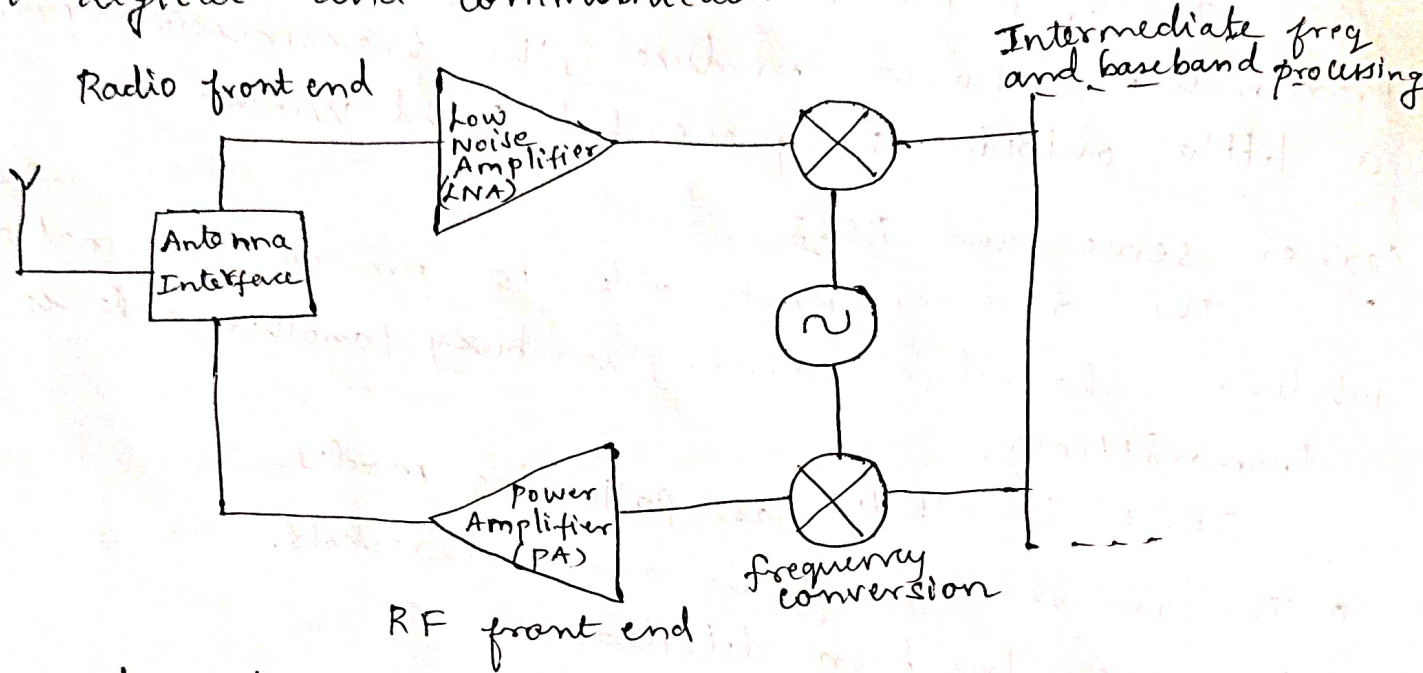 digital and
Intermediate freq
and baseband processing
Radio front end
Low
Noise
Amplifier
(LNA)
Antenna
Interface
Power
Amplifier
(PA)
frequency
conversion
RF front end